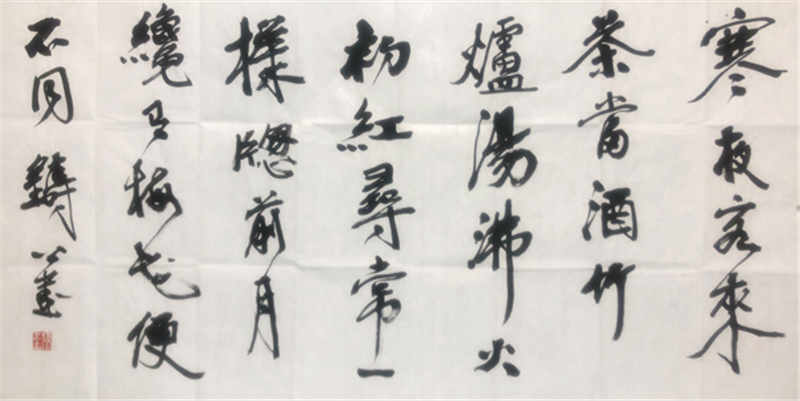 寒夜客來
茶當酒竹
爐湯沸火
初紅尋常一
樣牕前月
纔有梅花便
不同